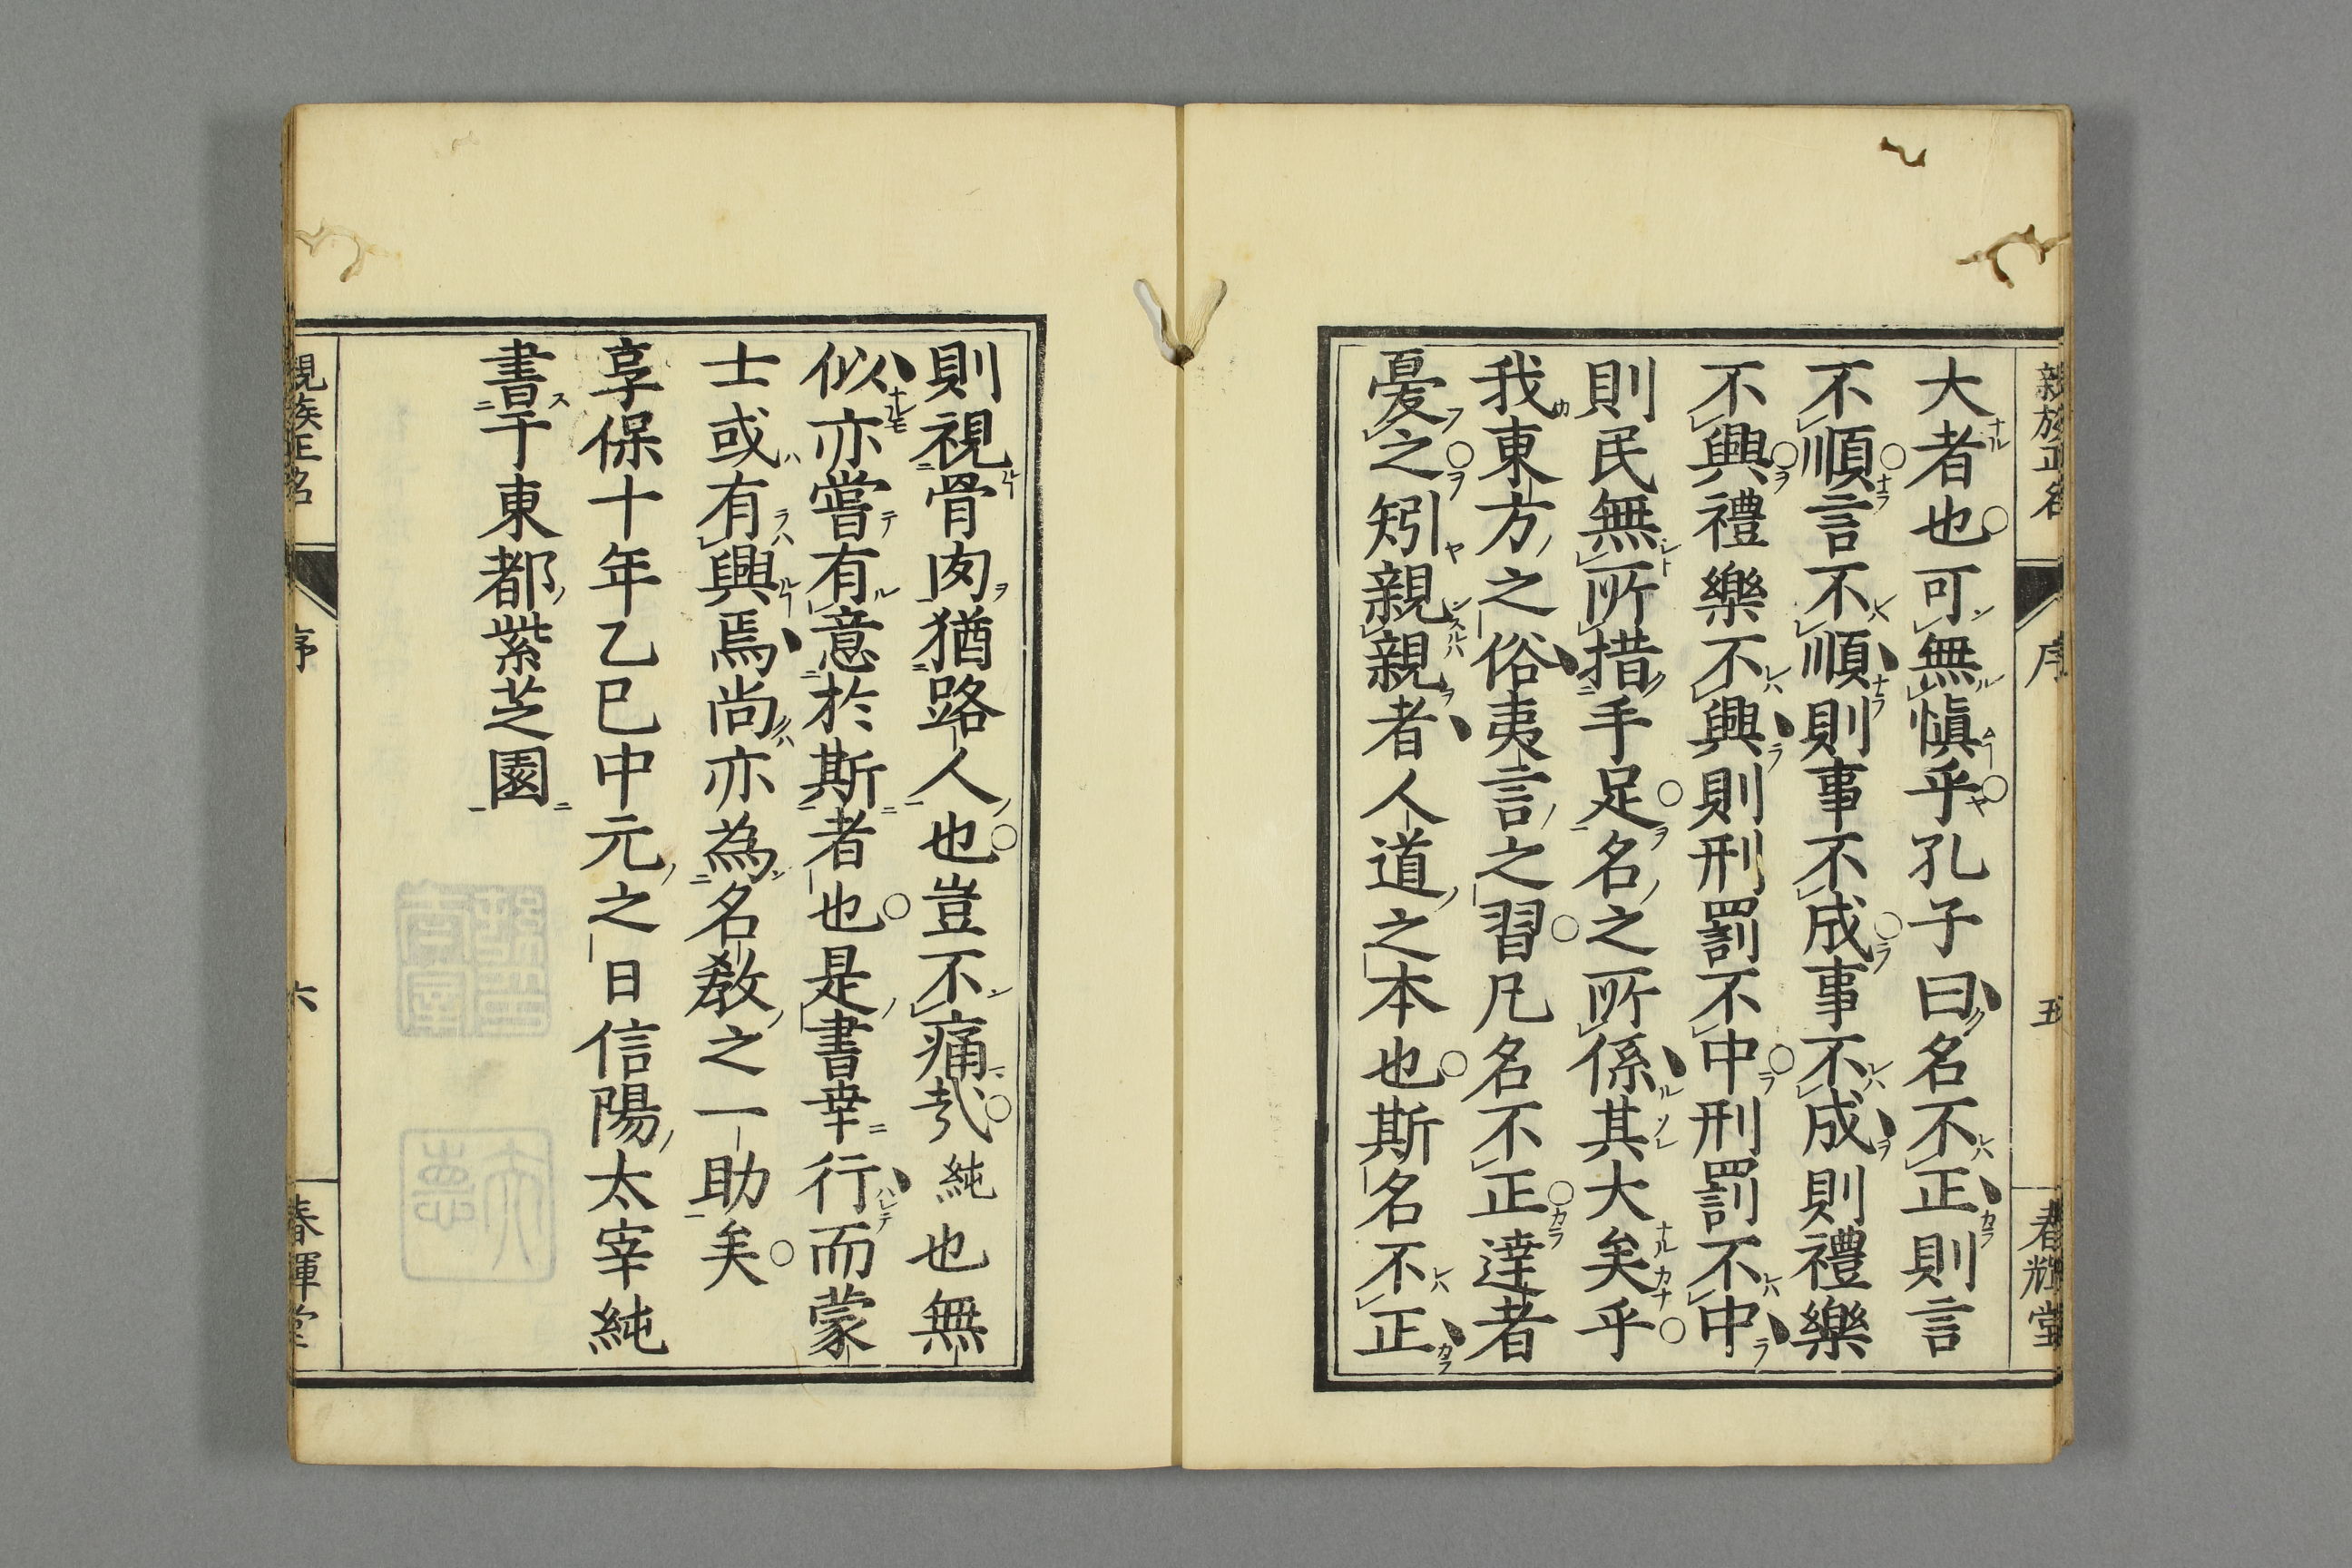 親族正名 序 五 春暉堂
大者也可無愼乎孔子曰名不正則言
不順言不順則事不成事不成則禮樂
不興禮樂不興則刑罰不中刑罰不中
則民無所措手足名之所係其大矣乎
我東方之俗夷言之習凡名不正達者
憂之矧親親者人道之本也斯名不正
則視骨肉猶路人也豈不痛哉純也無
似亦嘗有意於斯者也是書幸行而蒙
士或有興焉尚亦為名教之一助矣
享保十年乙巳中元之日信陽太宰純
書于東都紫芝園
親族正名 序 六 春暉堂